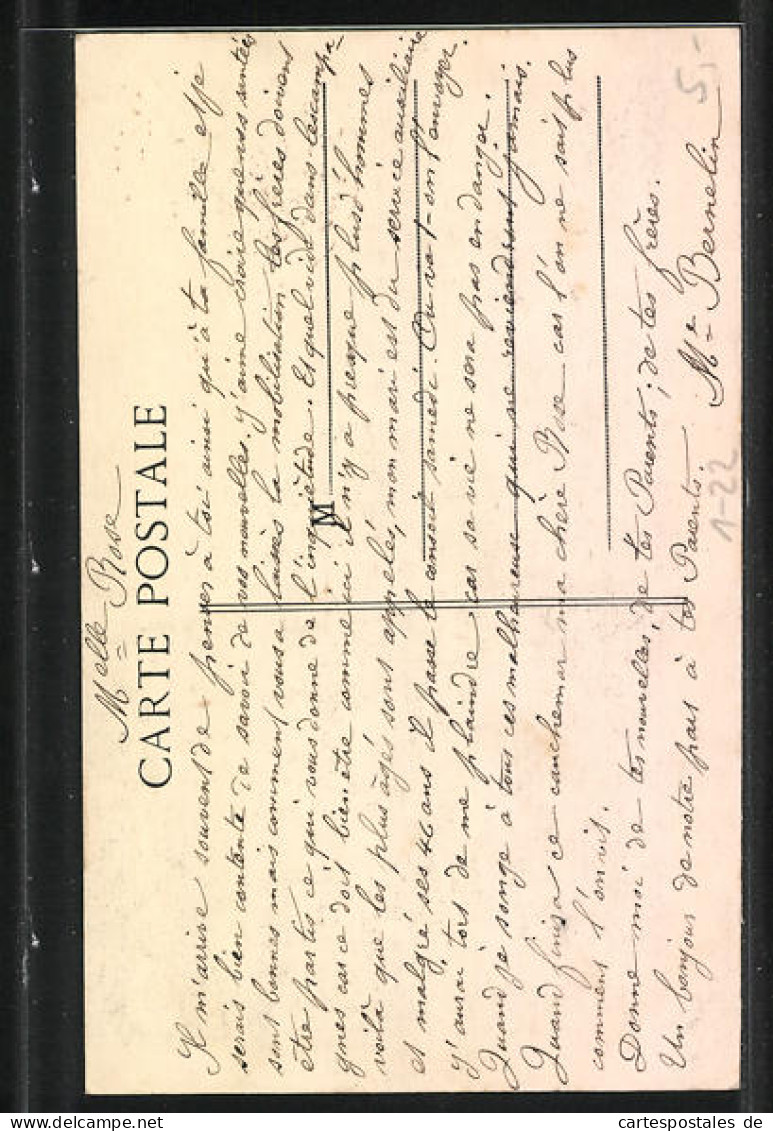 Melle Rose
CARTE POSTALE
M
Il m'arrive souvent de penser à toi ainsi qu'à ta famille et je
serais bien contente de savoir de vos nouvelles. J'aime croire que vos santées
sont bonnes mais comment vous a laissés la mobilisation tes frères doivent
etre partis ce qui vous donne de l'inquiètude. Et quel vide dans les campa-
gnes car ce doit bien être comme ici il n'y a presque plus d'hommes
voilà que les plus âgés sont appelés, mon mari est du service auxiliaire
et malgré ses 46 ans il passe le conseil samedi. Ou va t-on l'envoyer.
J'aurai tors de me plaindre car sa vie ne sera pas en danger.
Quand je songe à tous ces malheureux qui ne reviendront jamais.
Quand finira ce cauchemar ma chère Rose car l'on ne sait plus
comment l'on vit.
Donne moi de tes nouvelles, de tes Parents, de tes frères.
Un bonjour de notre part à tes Parents.
Me Bernelin
5,-
1-22
cartespostales de